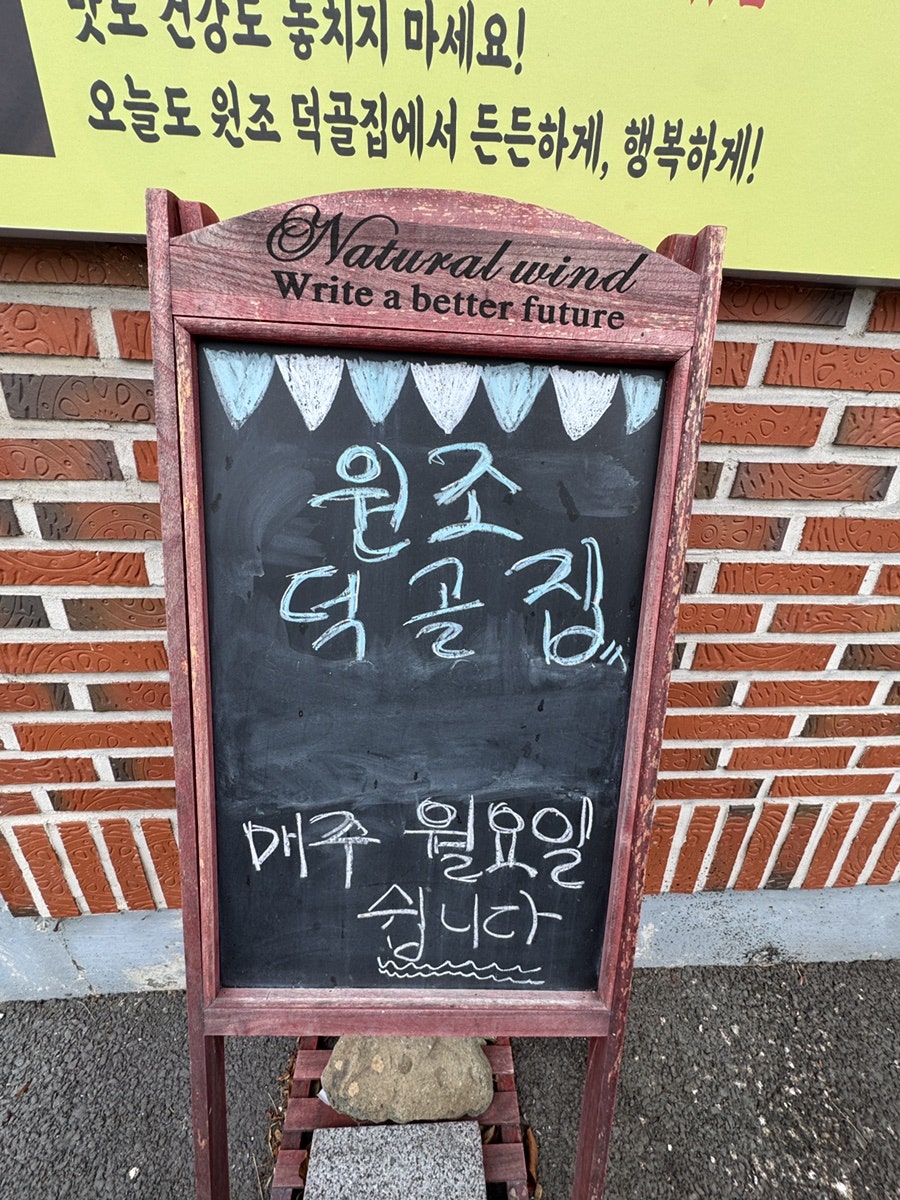 맛도 건강도 놓치지 마세요!
오늘도 원조 덕골집에서 든든하게, 행복하게!
Natural wind
Write a better future
원조
덕골집
매주 월요일
쉽니다